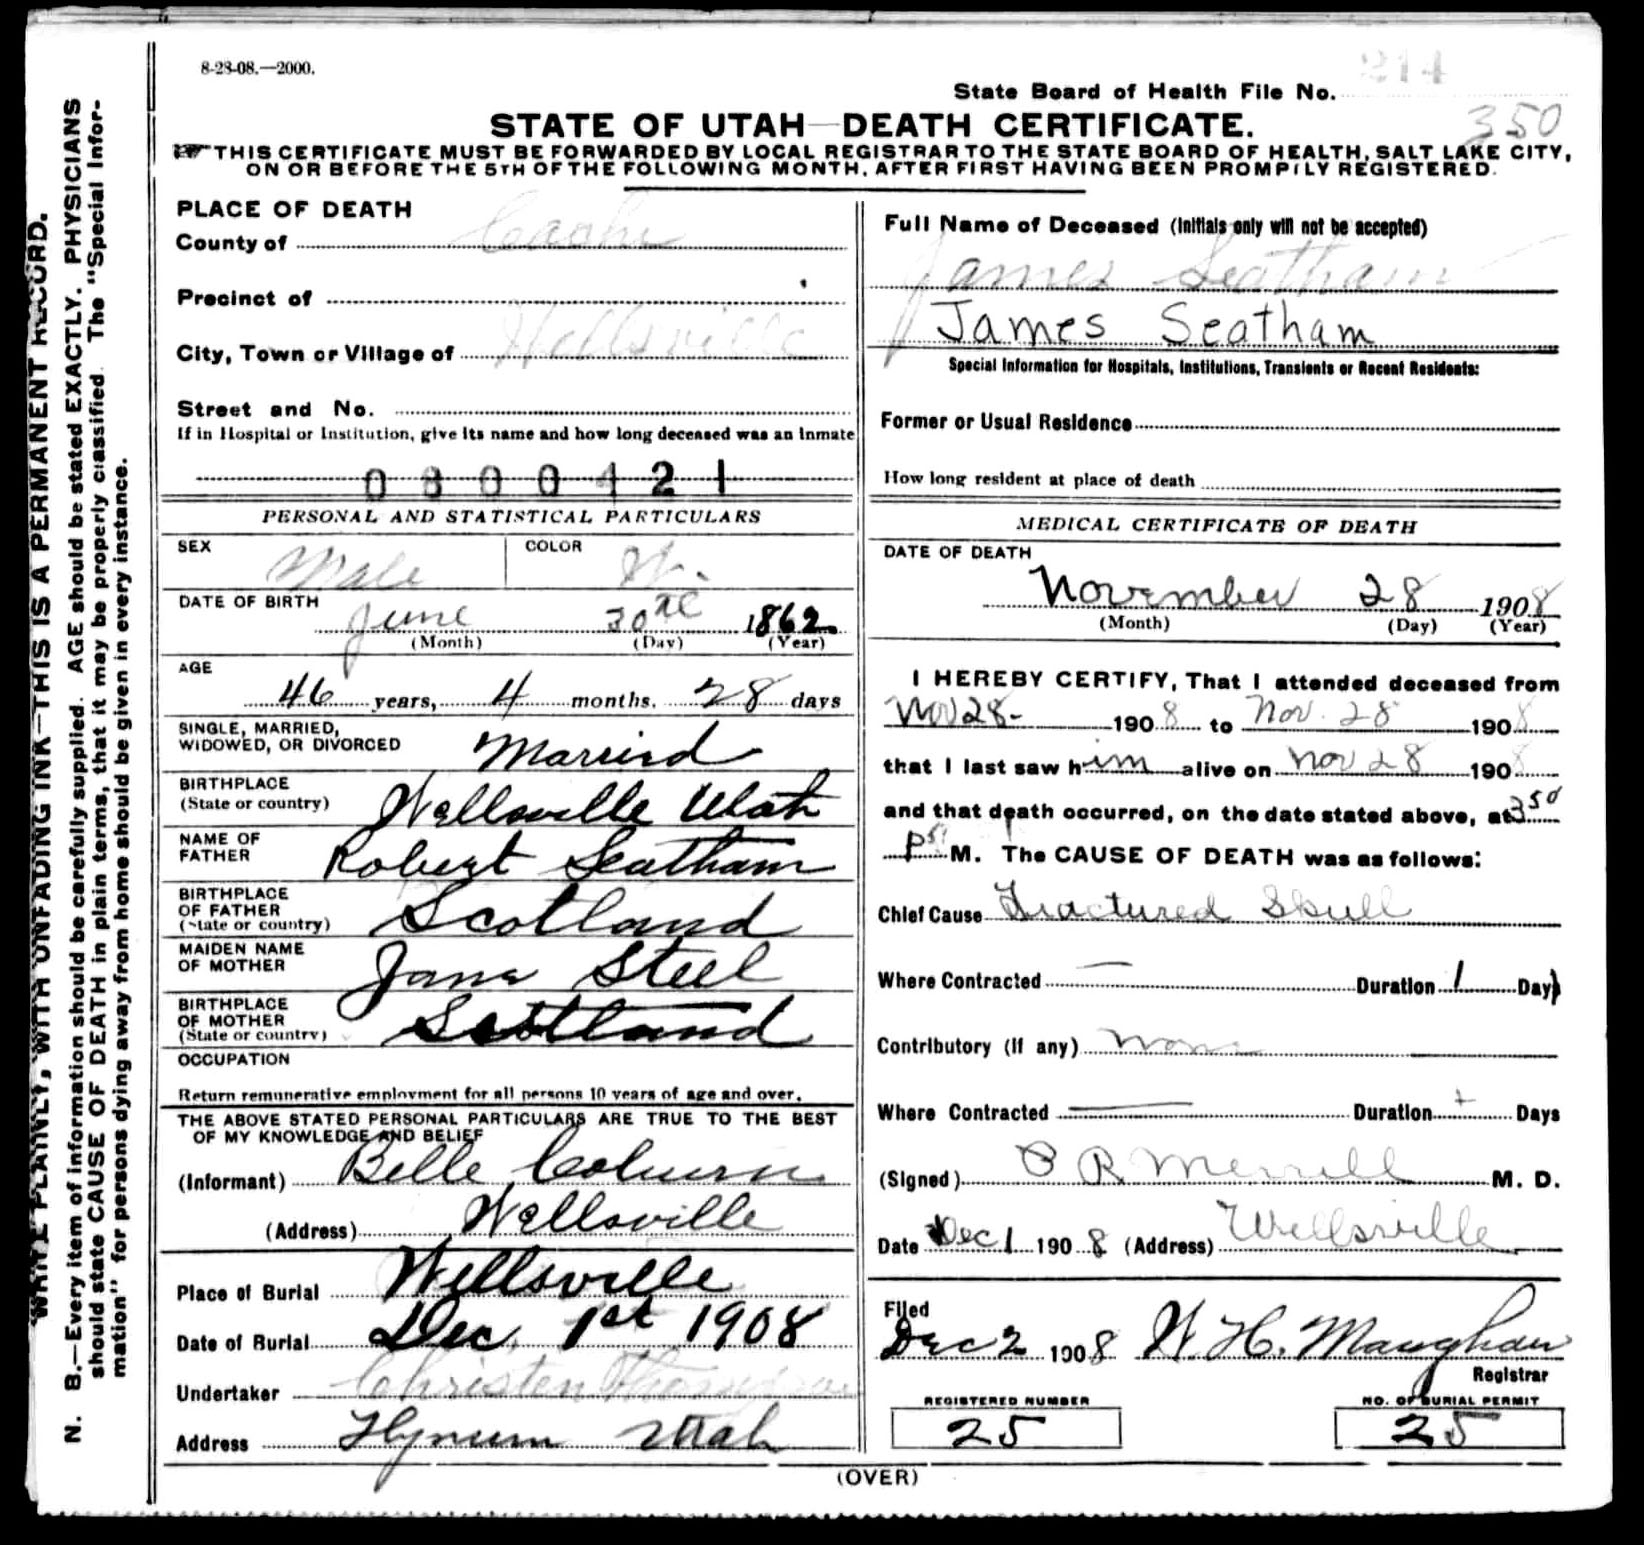 8-28-08.—2000.
State Board of Health File No. 214
350
STATE OF UTAH—DEATH CERTIFICATE.
THIS CERTIFICATE MUST BE FORWARDED BY LOCAL REGISTRAR TO THE STATE BOARD OF HEALTH, SALT LAKE CITY,
ON OR BEFORE THE 5TH OF THE FOLLOWING MONTH, AFTER FIRST HAVING BEEN PROMPTLY REGISTERED.
WRITE PLAINLY, WITH UNFADING INK—THIS IS A PERMANENT RECORD.
N. B.—Every item of information should be carefully supplied. AGE should be stated EXACTLY. PHYSICIANS
should state CAUSE OF DEATH in plain terms, that it may be properly classified. The "Special Infor-
mation" for persons dying away from home should be given in every instance.
PLACE OF DEATH
County of Cache
Precinct of
City, Town or Village of Wellsville
Street and No.
If in Hospital or Institution, give its name and how long deceased was an Inmate
0800421
PERSONAL AND STATISTICAL PARTICULARS
SEX Male COLOR W.
DATE OF BIRTH
June 30th 1862
(Month) (Day) (Year)
AGE
46 years, 4 months, 28 days
SINGLE, MARRIED,
WIDOWED, OR DIVORCED Married
BIRTHPLACE
(State or country) Wellsville Utah
NAME OF
FATHER Robert Leatham
BIRTHPLACE
OF FATHER
(State or country) Scotland
MAIDEN NAME
OF MOTHER Jane Steel
BIRTHPLACE
OF MOTHER
(State or country) Scotland
OCCUPATION
Return remunerative employment for all persons 10 years of age and over.
THE ABOVE STATED PERSONAL PARTICULARS ARE TRUE TO THE BEST
OF MY KNOWLEDGE AND BELIEF
(Informant) Belle Coburn
(Address) Wellsville
Place of Burial Wellsville
Date of Burial Dec. 1st 1908
Undertaker Christen
Address Hyrum Utah
Full Name of Deceased (Initials only will not be accepted)
James Leatham
James Seatham
Special Information for Hospitals, Institutions, Transients or Recent Residents:
Former or Usual Residence
How long resident at place of death
MEDICAL CERTIFICATE OF DEATH
DATE OF DEATH
November 28 1908
(Month) (Day) (Year)
I HEREBY CERTIFY, That I attended deceased from
Nov 28- 1908 to Nov. 28 1908
that I last saw him alive on Nov 28 1908
and that death occurred, on the date stated above, at 3 50
P M. The CAUSE OF DEATH was as follows:
Chief Cause Fractured Skull
Where Contracted — Duration 1 Days
Contributory (if any) none
Where Contracted — Duration Days
(Signed) R Merrill M. D.
Date Dec 1 1908 (Address) Wellsville
Filed
Dec 2 1908 W. H. Maughan
Registrar
REGISTERED NUMBER
25
NO. OF BURIAL PERMIT
25
(OVER)